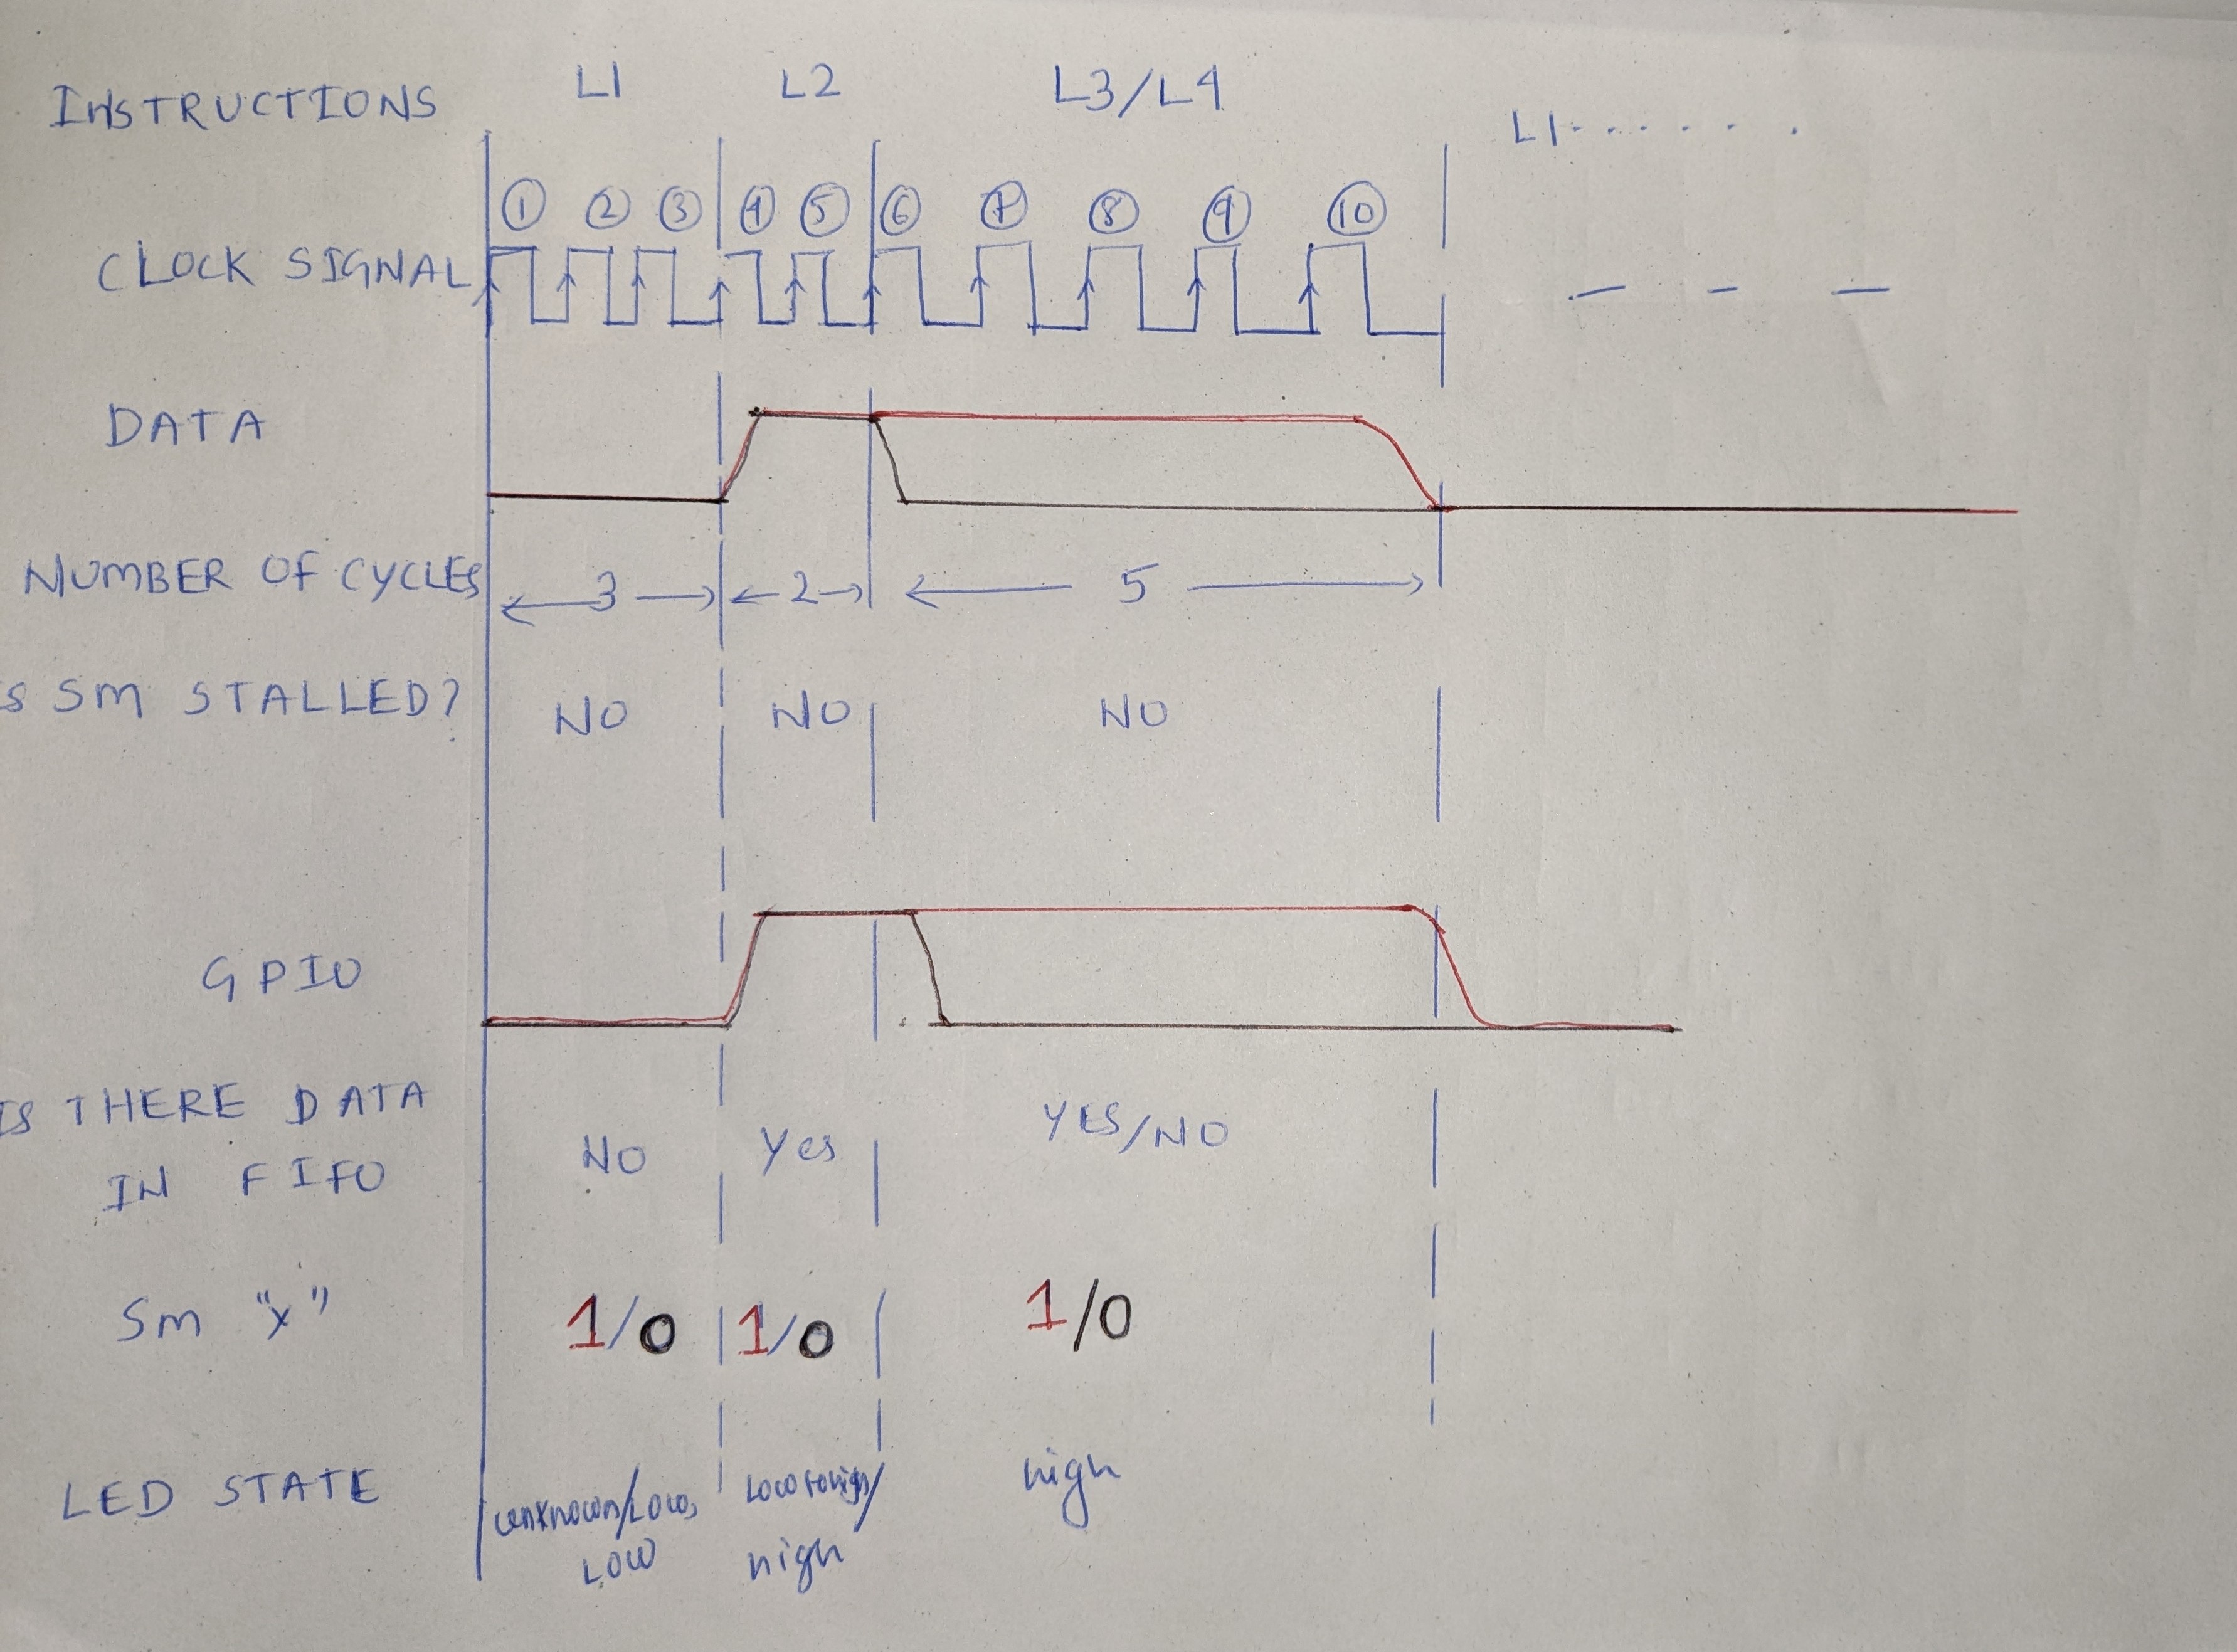 INSTRUCTIONS L1 L2 L3/L4 L1. . . . . . .
1 2 3 4 5 6 7 8 9 10
CLOCK SIGNAL — - —
DATA
NUMBER OF CYCLES 3 2 5
S SM STALLED? NO NO NO
GPIO
IS THERE DATA
IN FIFO NO Yes YES/NO
SM "X" 1/0 1/0 1/0
LED STATE unknown/Low, Low to high/ high
LOW high